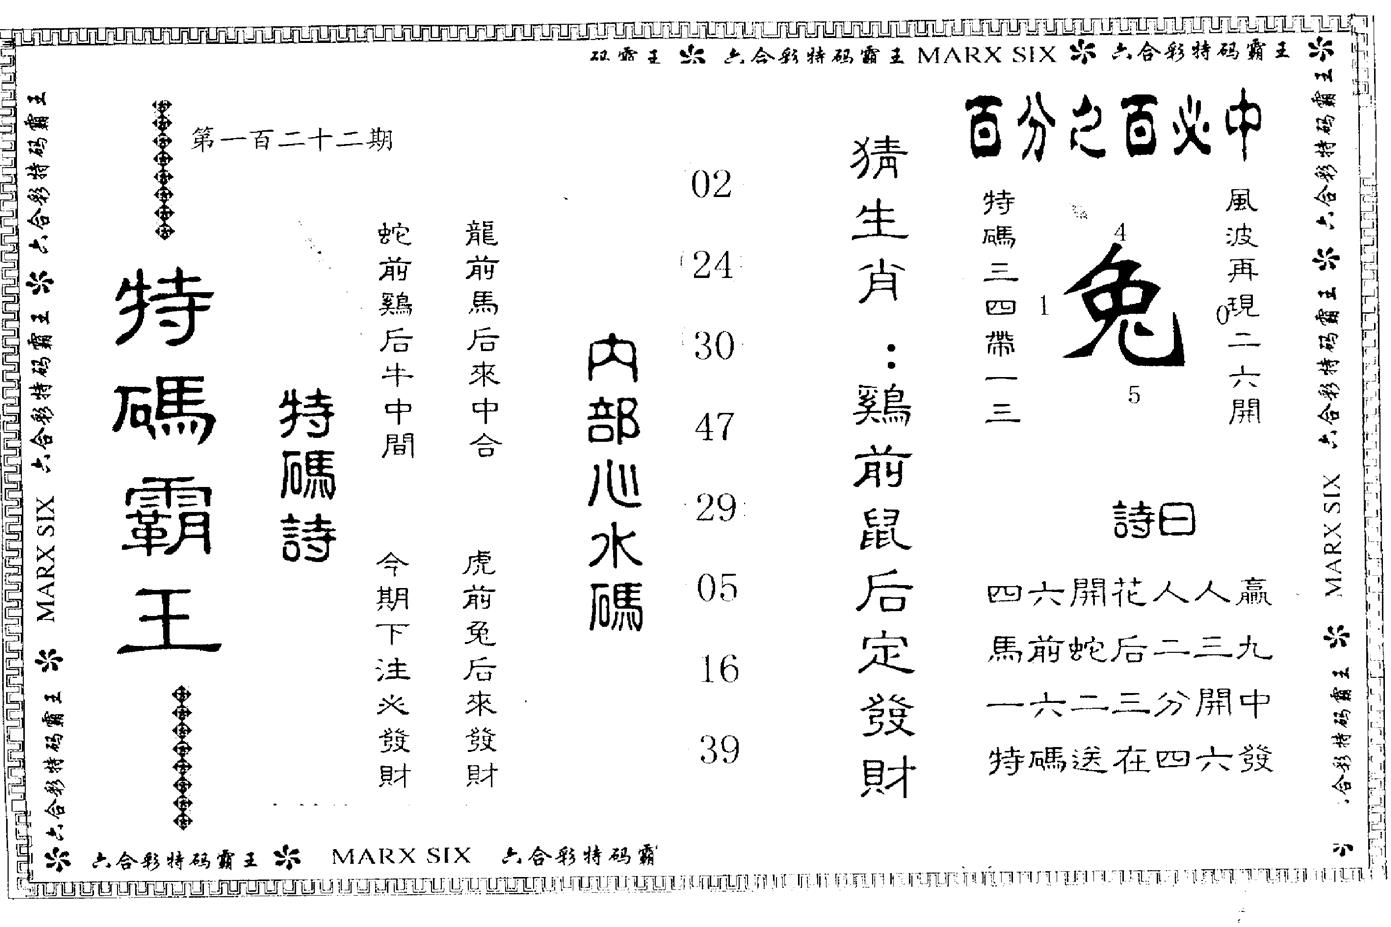 码霸王 六合彩特码霸王 MARX SIX 六合彩特码霸王
六合彩特码霸王 六合彩特码霸王 MARX SIX 六合彩特码霸王
第一百二十二期
特碼霸王
特碼詩
龍前馬后來中合
蛇前鷄后牛中間
虎前兔后來發財
今期下注必發財
内部心水碼
02
24
30
47
29
05
16
39
猜生肖：鷄前鼠后定發財
百分之百必中
風波再現二六開
特碼三四帶一三
4
1
兔
0
5
詩曰
四六開花人人赢
馬前蛇后二三九
一六二三分開中
特碼送在四六發
六合彩特码霸王 六合彩特码霸王 MARX SIX 合彩特码霸王
六合彩特码霸王 MARX SIX 六合彩特码霸